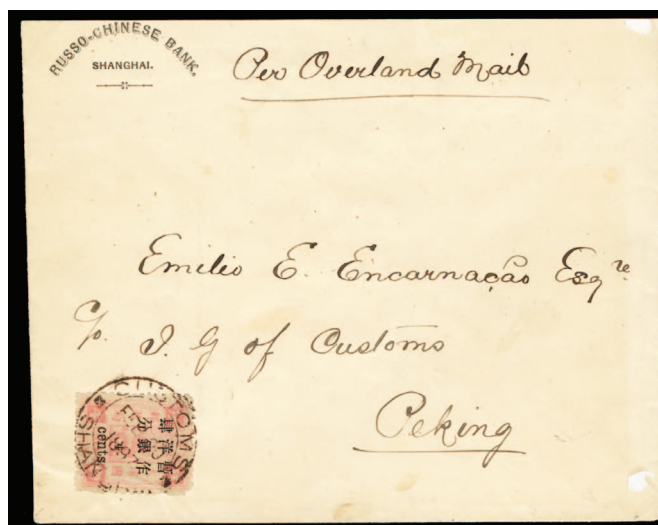 RUSSO-CHINESE BANK.
SHANGHAI.
Per Overland Mail
Emilio E. Encarnação Esqre
c/o I. G of Customs
Peking
CUSTOMS
SHAN
FEB
1897
暫作
洋銀
肆分
cents.